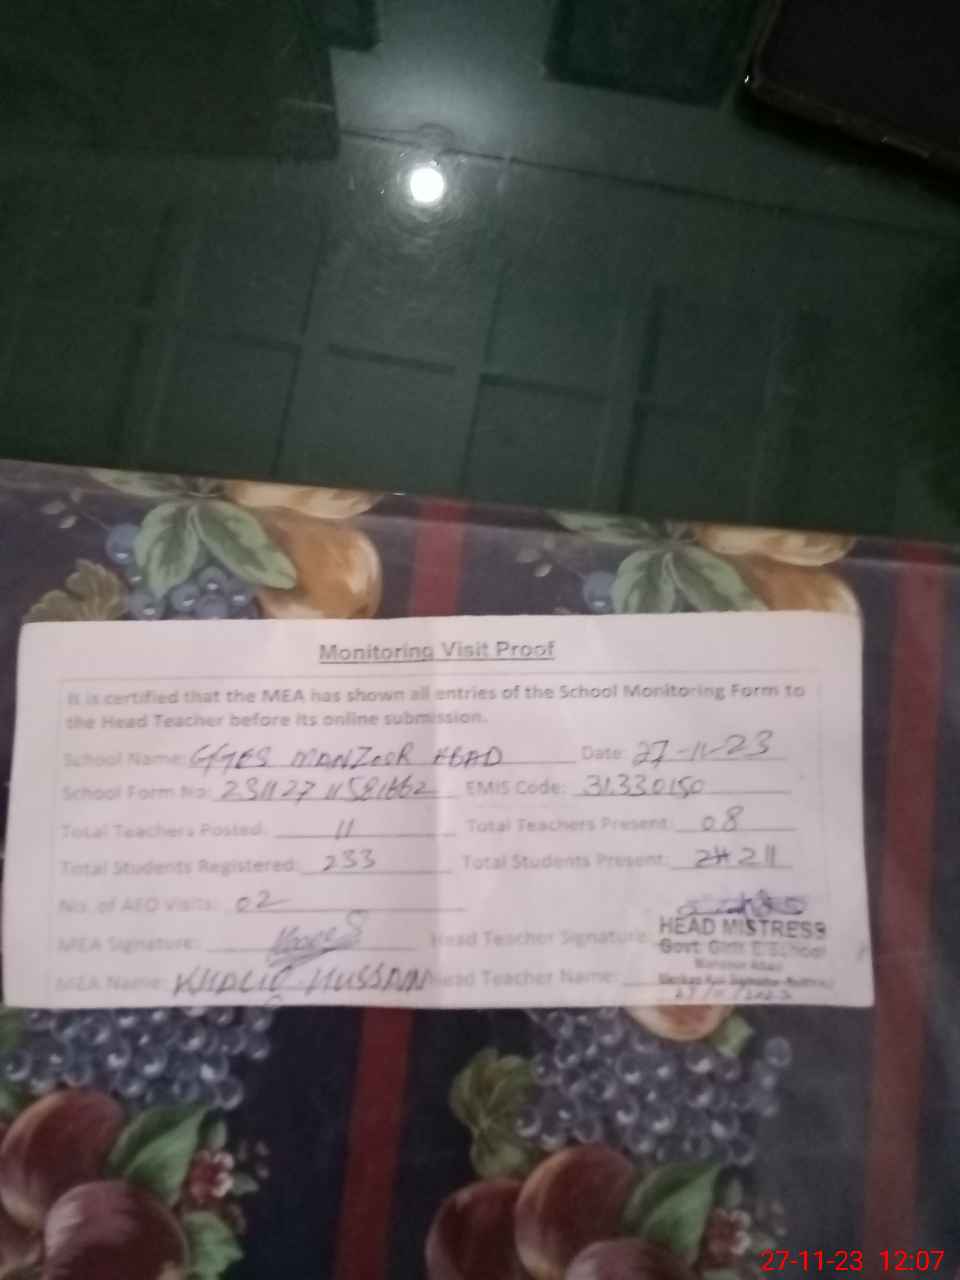 Monitoring Visit Proof
It is certified that the MEA has shown all entries of the School Monitoring Form to
the Head Teacher before its online submission.
School Name: GGES MANZOOR ABAD Date: 27-11-23
School Form No: 231127 11581662 EMIS Code: 31330150
Total Teachers Posted: 11 Total Teachers Present: 08
Total Students Registered: 233 Total Students Present: 211
No. of AEO Visits: 02
MEA Signature: Head Teacher Signature:
HEAD MISTRESS
Govt. Girls E/School
MEA Name: KHALIC HUSSAIN Head Teacher Name:
27-11-23 12:07